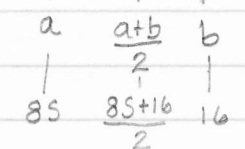 a a+b/2 b
85 85+16/2 16